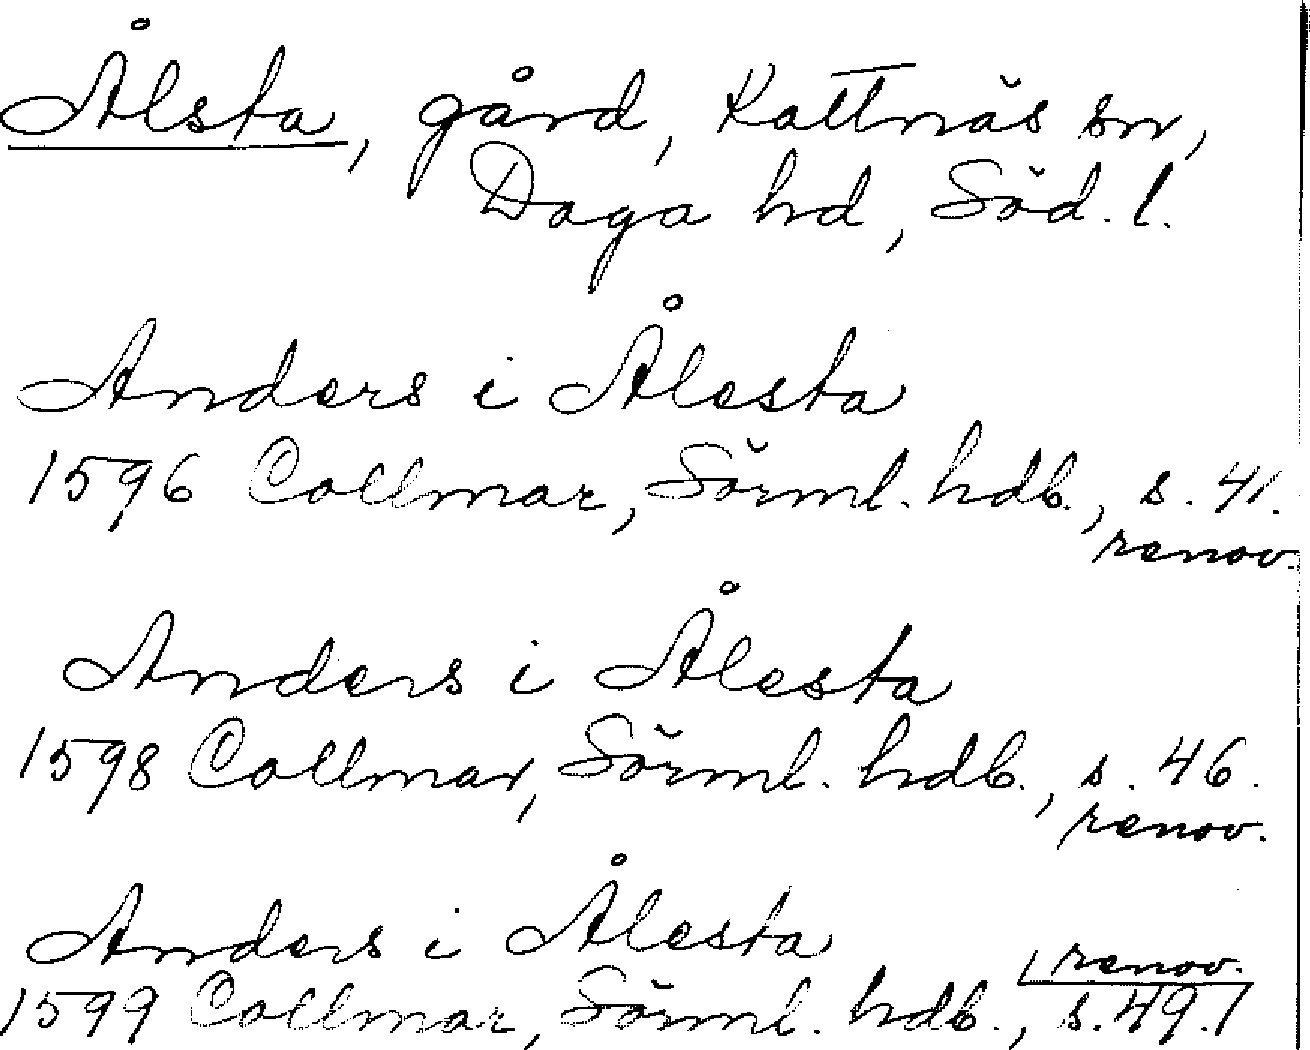 Ålsta, gård, Kattnäs sn,
Daga hd, Söd. l.
Anders i Ålesta
1596 Collmar, Sörml. hdb., s. 41.
renov.
Anders i Ålesta
1598 Collmar, Sörml. hdb., s. 46.
renov.
Anders i Ålesta
renov.
1599 Collmar, Sörml. hdb., s. 49.